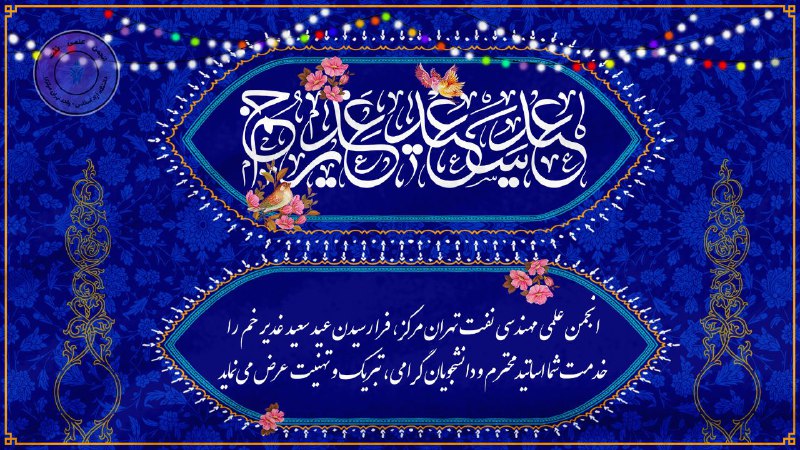 عید سعید غدیر خم
انجمن علمی مهندسی نفت تهران مرکز، فرا رسیدن عید سعید غدیر خم را
خدمت شما اساتید محترم و دانشجویان گرامی، تبریک و تهنیت عرض می نماید